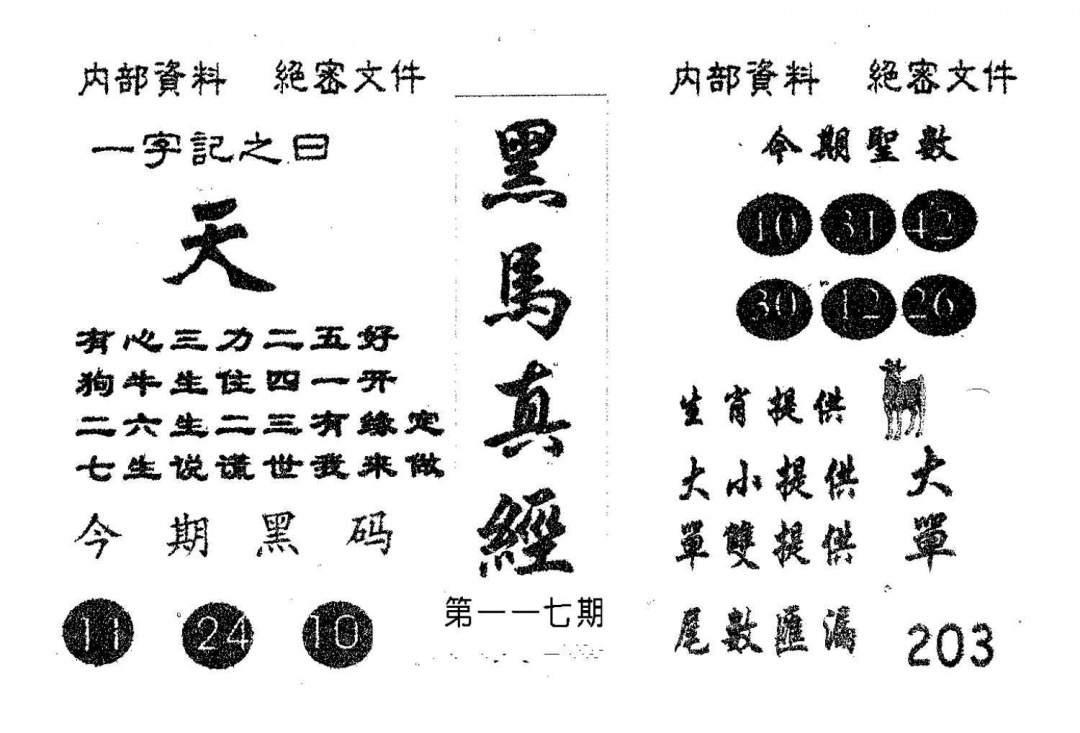 内部資料 絕密文件
一字記之曰
天
有心三力二五好
狗牛生住四一开
二六生二三有缘定
七生说谎世我来做
今期黑码
11 24 10
黑馬真經
第一一七期
内部資料 絕密文件
今期聖數
10 31 42
30 12 26
生肖提供
大小提供 大
單雙提供 單
尾數匯漏 203